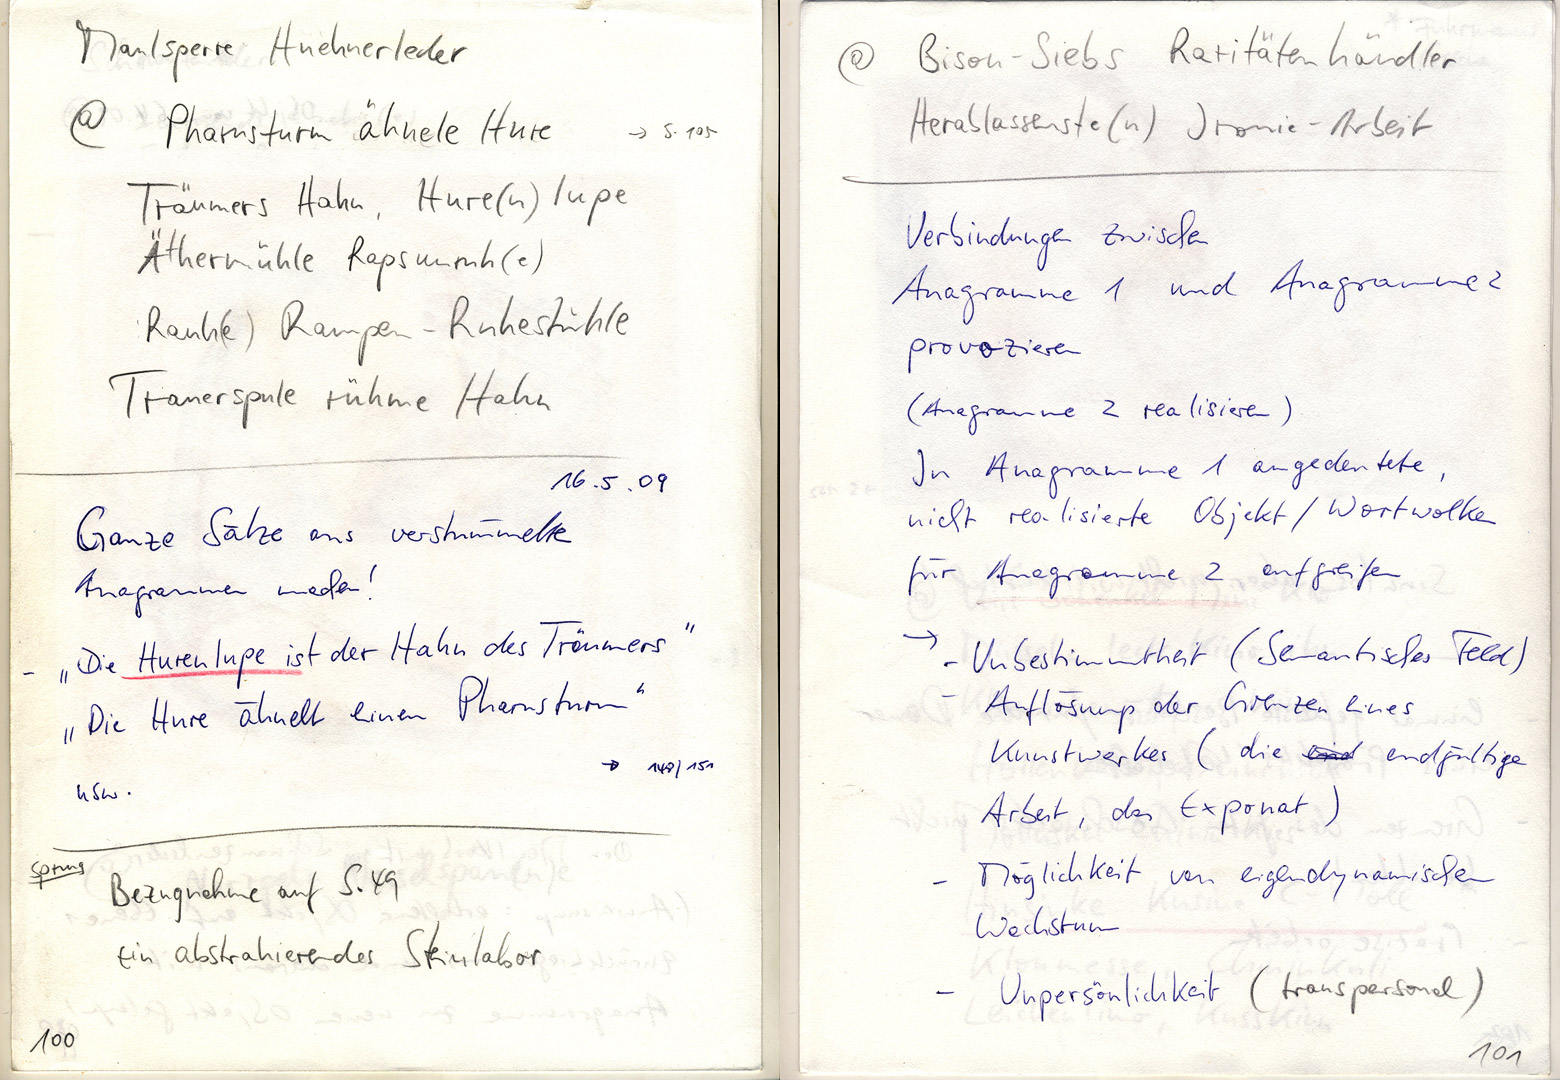 Maulsperre Huehnerleder
@ Pharnsturm ähnele Hure → S. 105
Träumers Hahn, Hure(n)lupe
Äthermühle Rapsunruh(e)
Rauh(e) Rampen-Ruhestühle
Trauerspule rühme Hahn
16.5.09
Ganze Sätze aus verstümmelte
Anagrammen machen!
- „Die Hurenlupe ist der Hahn des Träumers"
„Die Hure ähnelt einen Pharnsturm"
→ 148/151
usw.
Sprung
Bezugnahme auf S. 49
Ein abstrahierendes Steinlabor
100
@ Bison-Siebs Raritätenhändler
Herablassenste(n) Ironie-Arbeit
Verbindungen zwischen
Anagramme 1 und Anagramme 2
provozieren
(Anagramme 2 realisieren)
In Anagramme 1 angedeutete,
nicht realisierte Objekt/Wortwolken
für Anagramme 2 aufgreifen
→ - Unbestimmtheit (Semantisches Feld)
- Auflösung der Grenzen eines
Kunstwerkes (die endgültige
Arbeit, das Exponat)
- Möglichkeit von eigendynamischen
Wachstum
- Unpersönlichkeit (transpersonal)
101